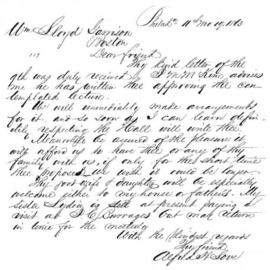 Philada 11th mo 19, 1863
Wm Lloyd Garrison
Boston
Dear friend
Thy kind letter of the
9th was duly received by J M M Kim advises
me he has written thee approving the con
templated lecture.
We will immediately make arrangements
for it, and so soon as I can learn defin
itely respecting the Hall will write thee.
Meanwhile be assured of the pleasure it
will afford us to have thee or any of thy
family with us, if only for the short time
thee proposes, we wish it could be longer.
Thy good wife & daughter will be especially
welcome either to my house or father's. My
sister Lydia is still at present paying a
visit at Burrages but may return
in time for the meeting
With the kindest regards
Thy friend
Alfred H. Love